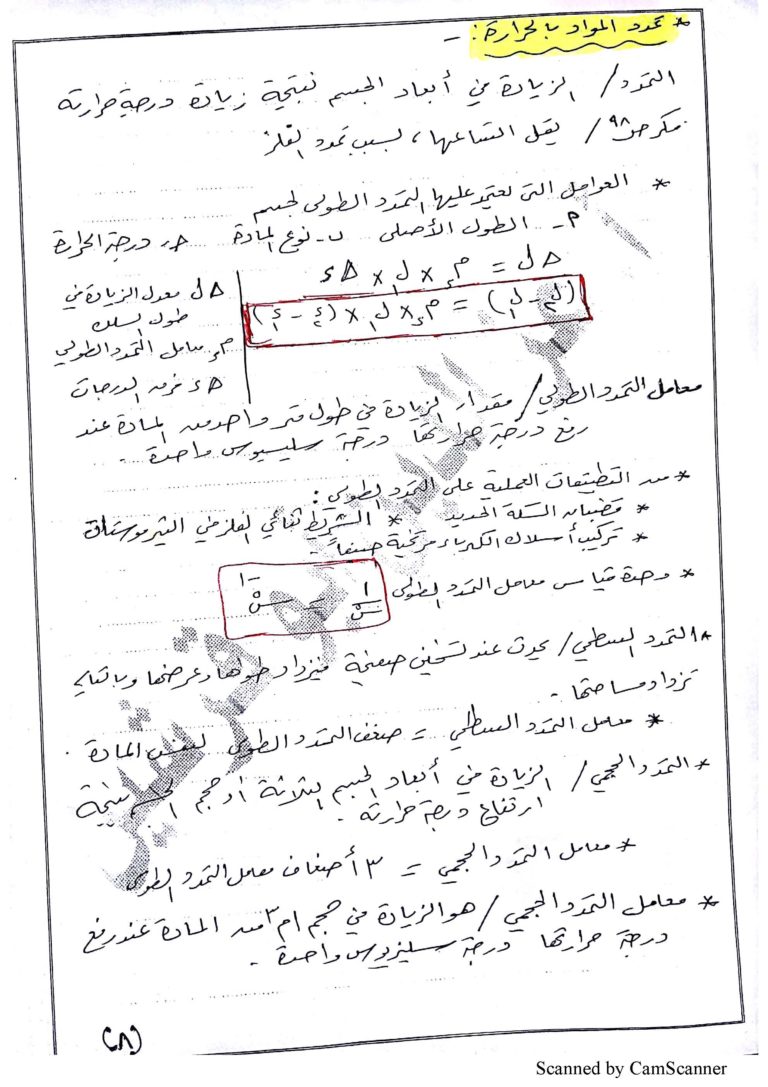 * تمدد المواد بالحرارة : -
التمدد / الزيادة في أبعاد الجسم نتيجة زيادة درجة حرارته
فكر ص٩٨ / يقل اتساعها ، بسبب تمدد الفلز
* العوامل التي يعتمد عليها التمدد الطولي لجسم
م- الطول الأصلي ب- نوع المادة ج- درجة الحرارة
Δل = مء × ل١ × Δء
(ل٢ - ل١) = مء × ل١ × (ء٢ - ء١)
Δل معدل الزيادة في
طول السلك
مء معامل التمدد الطولي
Δء فرق الدرجات
معامل التمدد الطولي / مقدار الزيادة في طول متر واحد من المادة عند
رفع درجة حرارتها درجة سليسيوس واحدة .
* من التطبيقات العملية على التمدد الطولي :
* قضبان السكة الحديد * الشريط ثنائي الفلز في الثيرموستات
* تركيب أسلاك الكهرباء مرتخية صيفاً .
* وحدة قياس معامل التمدد الطولي ١/سْ = سْ-١
* التمدد السطحي / يحدث عند تسخين صفيحة فيزداد طولها وعرضها وبالتالي
تزداد مساحتها .
* معامل التمدد السطحي = ضعف التمدد الطولي لنفس المادة .
* التمدد الحجمي / الزيادة في أبعاد الجسم الثلاثة أو حجم الجسم نتيجة
ارتفاع درجة حرارته .
* معامل التمدد الحجمي = ٣ أضعاف معامل التمدد الطولي
* معامل التمدد الحجمي / هو الزيادة في حجم ١م٣ من المادة عند رفع
درجة حرارتها درجة سليزيوس واحدة .
(٨)
Scanned by CamScanner